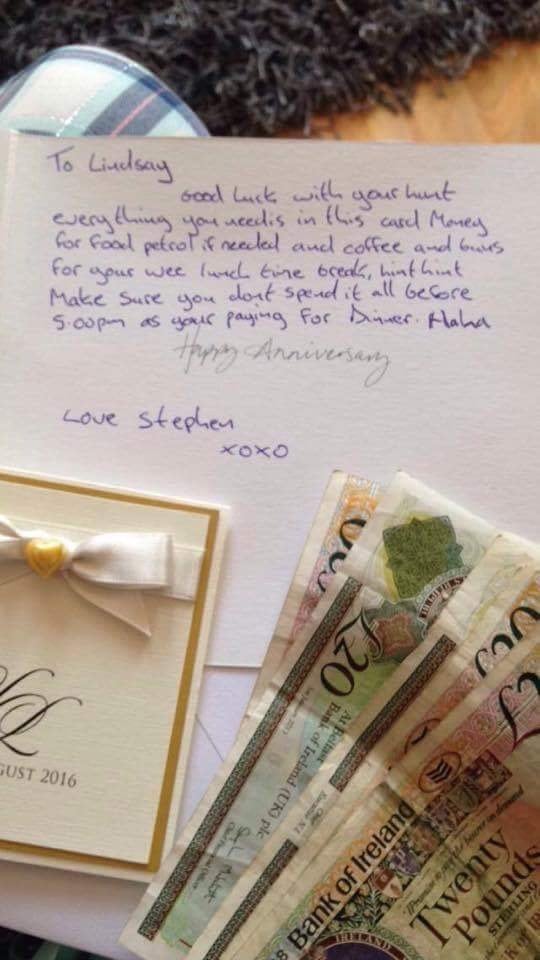 To Lindsay
Good Luck with your hunt
everything you need is in this card Money
for food petrol if needed and coffee and buns
for your wee lunch time break, hint hint
Make sure you dont spend it all before
5.00pm as your paying for Dinner. Haha
Happy Anniversary
Love Stephen
xoxo
GUST 2016
£20
At Belfast
Bank of Ireland (UK) plc
Bank of Ireland
Twenty
Pounds
STERLING
IRELAND